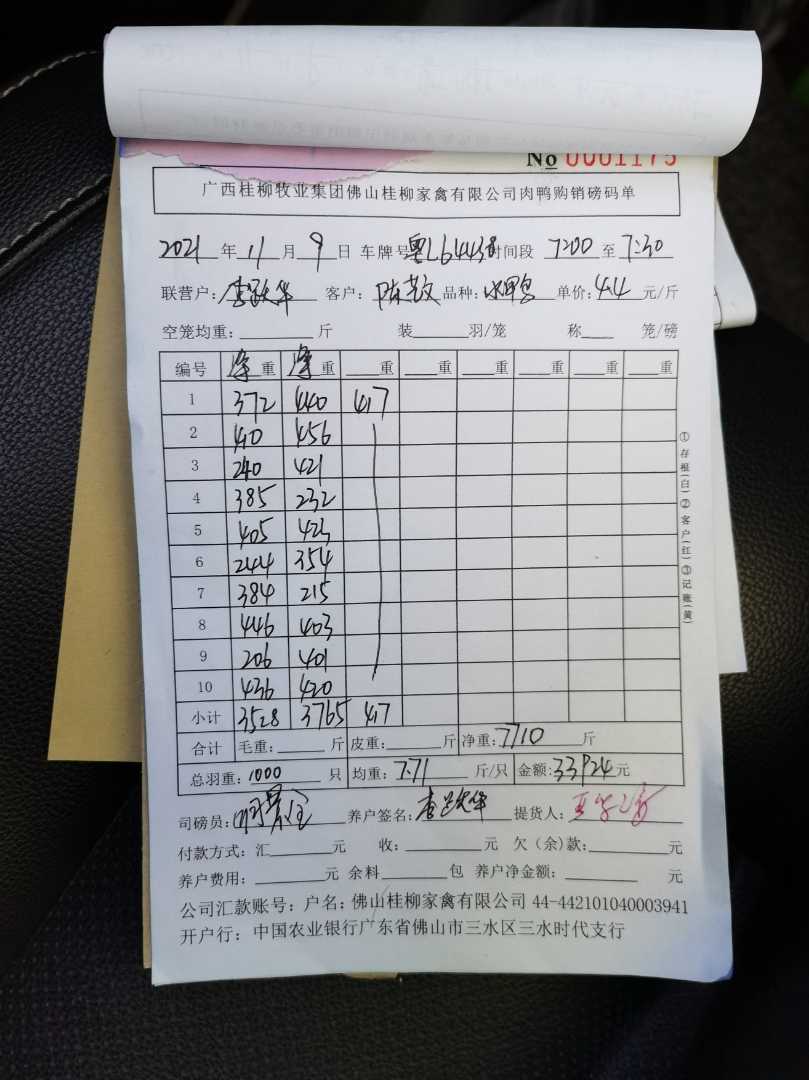 No 0001175
广西桂柳牧业集团佛山桂柳家禽有限公司肉鸭购销磅码单
2021 年 11 月 9 日 车牌号 粤L64438 时间段 7:00 至 7:30
联营户: 客户: 陈 品种: 水鸭 单价: 4.4 元/斤
空笼均重: 斤 装 羽/笼 称 笼/磅
编号 净重 净重 重 重 重 重 重 重
1 372 440 417
2 410 456
3 240 421
4 385 232
5 405 423
6 244 354
7 384 215
8 446 403
9 206 401
10 436 420
小计 3528 3765 417
合计 毛重: 斤 皮重: 斤 净重: 7710 斤
总羽重: 1000 只 均重: 7.71 斤/只 金额: 33924 元
司磅员: 养户签名: 提货人:
付款方式: 汇 元 收: 元 欠(余)款: 元
养户费用: 元 余料 包 养户净金额: 元
公司汇款账号: 户名: 佛山桂柳家禽有限公司 44-442101040003941
开户行: 中国农业银行广东省佛山市三水区三水时代支行
①存根(白)②客户(红)③记账(黄)